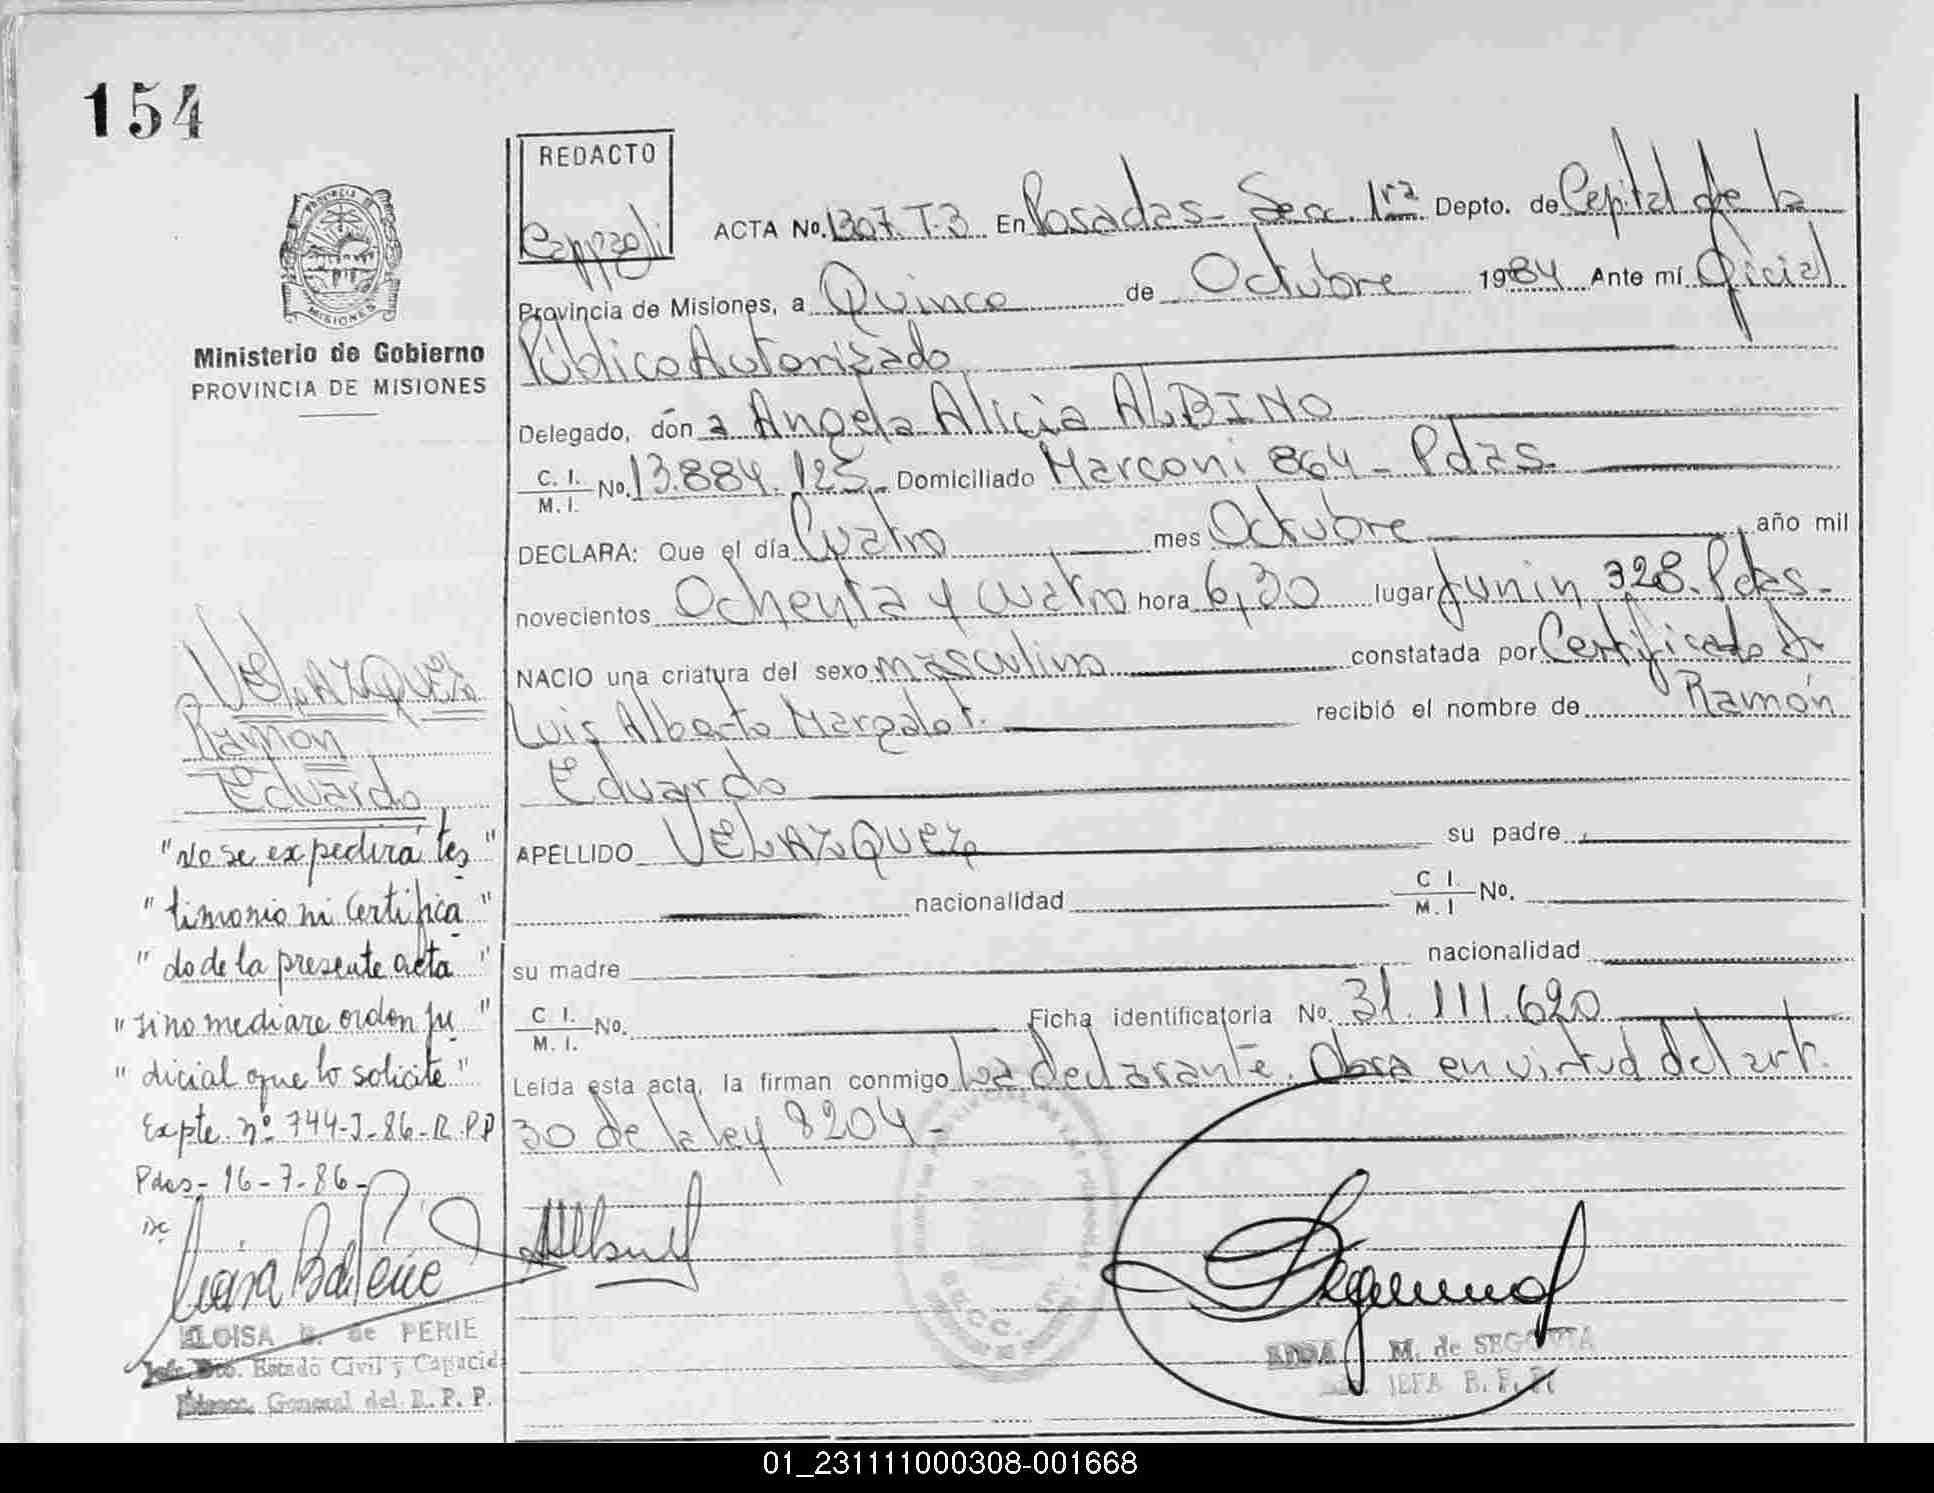 154
PROVINCIA DE
MISIONES
Ministerio de Gobierno
PROVINCIA DE MISIONES
REDACTO
ACTA No. 1307. T-3 En Posadas - Secc. 1ra. Depto. de Capital de la
Provincia de Misiones, a Quince de Octubre 1984 Ante mí Oficial
Público Autorizado
Delegado, dón a Angela Alicia ALBINO
C. I. / M. I. No. 13.884.125 - Domiciliado Marconi 864 - Pdas.
DECLARA: Que el día Cuatro mes Octubre año mil
novecientos Ochenta y cuatro hora 6,30 lugar Junin 328. Pdas -
NACIO una criatura del sexo masculino constatada por Certificado Dr
Luis Alberto Margalot. recibió el nombre de Ramón
Eduardo
APELLIDO VELAZQUEZ su padre
nacionalidad C I. / M. I No.
su madre nacionalidad
C I. / M. I. No. Ficha identificatoria No. 31.111.620
Leída esta acta, la firman conmigo la declarante. Obra en virtud del art.
30 de la ley 8204 -
VELAZQUEZ
Ramón
Eduardo
"No se expedirá tes"
"timonio ni Certifica"
"do de la presente acta"
"sino mediare orden ju"
"dicial que lo solicite"
Expte. nº 744-J-86-R.P.P
Pdas - 16-7-86 -
ELOISA B. de PERIE
Jefe Dto. Estado Civil y Capacid
General del R. P. P.
SECC.
AIDA M. de SEGOVIA
JEFA R. P. P.
01_231111000308-001668